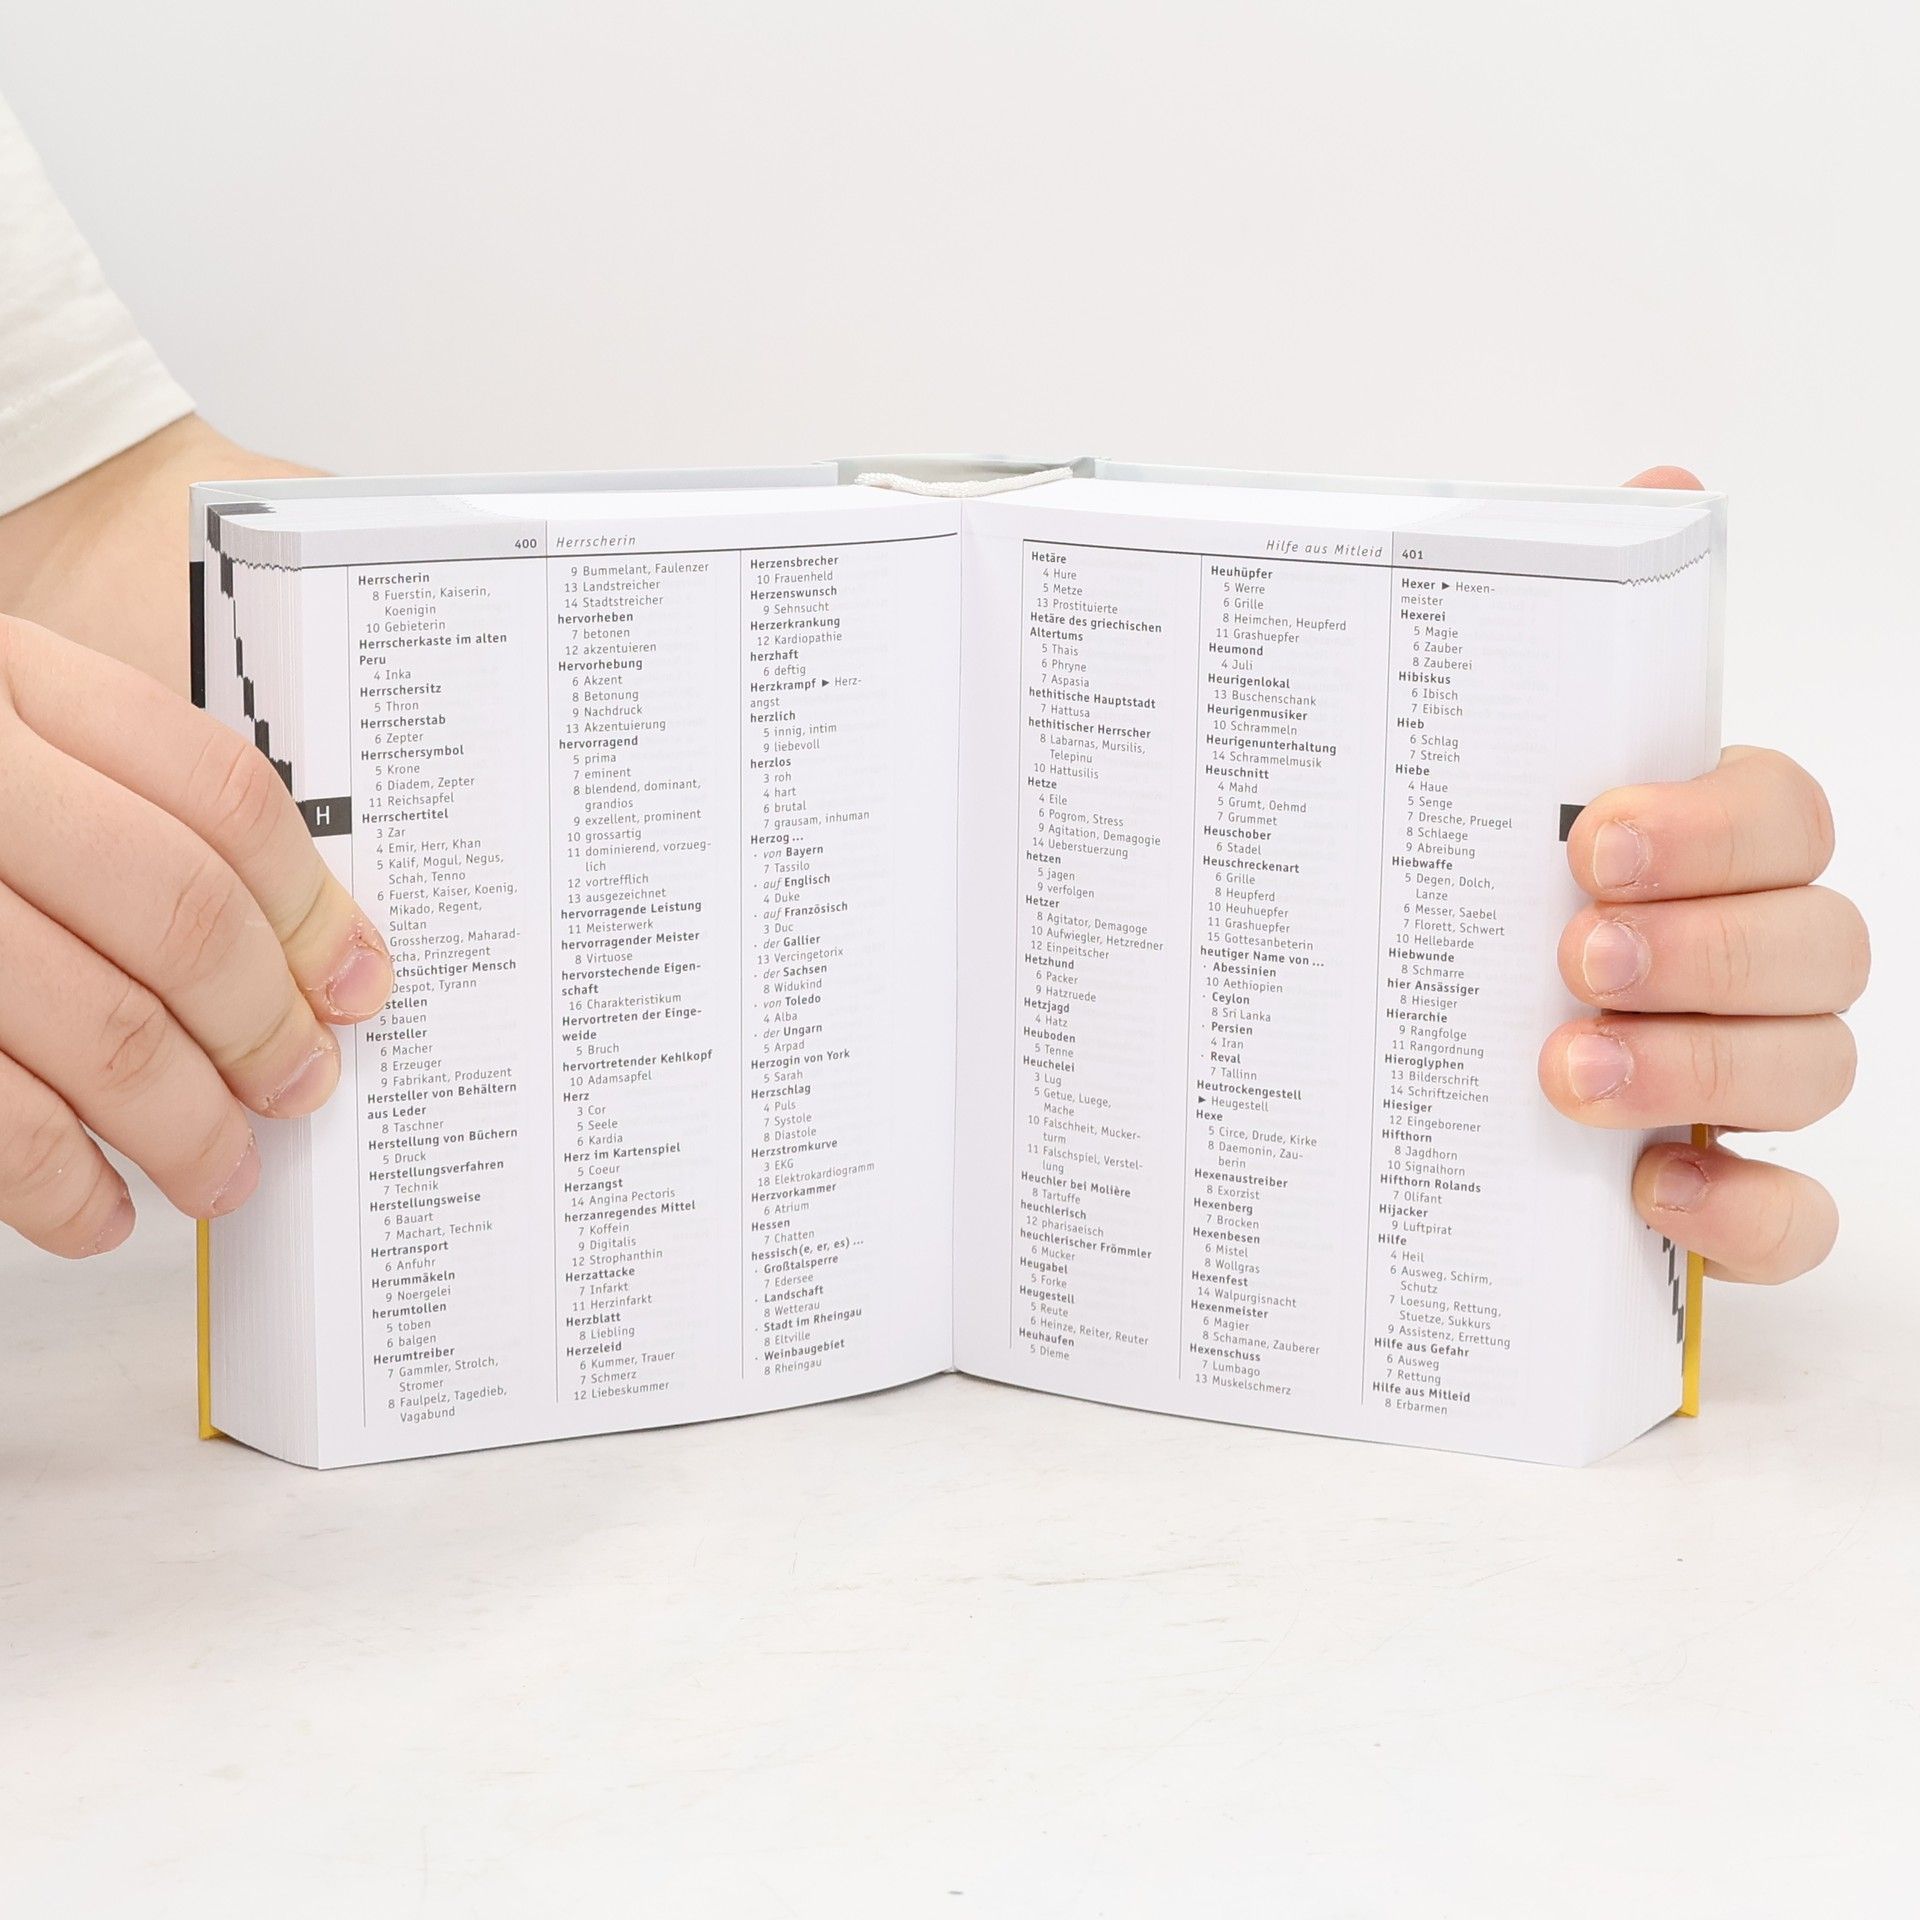 400 Herrscherin
Herrscherin
8 Fuerstin, Kaiserin,
Koenigin
10 Gebieterin
Herrscherkaste im alten
Peru
4 Inka
Herrschersitz
5 Thron
Herrscherstab
6 Zepter
Herrschersymbol
5 Krone
6 Diadem, Zepter
11 Reichsapfel
Herrschertitel
3 Zar
4 Emir, Herr, Khan
5 Kalif, Mogul, Negus,
Schah, Tenno
6 Fuerst, Kaiser, Koenig,
Mikado, Regent,
Sultan
Grossherzog, Maharad-
scha, Prinzregent
chsüchtiger Mensch
Despot, Tyrann
stellen
5 bauen
Hersteller
6 Macher
8 Erzeuger
9 Fabrikant, Produzent
Hersteller von Behältern
aus Leder
8 Taschner
Herstellung von Büchern
5 Druck
Herstellungsverfahren
7 Technik
Herstellungsweise
6 Bauart
7 Machart, Technik
Hertransport
6 Anfuhr
Herummäkeln
9 Noergelei
herumtollen
5 toben
6 balgen
Herumtreiber
7 Gammler, Strolch,
Stromer
8 Faulpelz, Tagedieb,
Vagabund
H
9 Bummelant, Faulenzer
13 Landstreicher
14 Stadtstreicher
hervorheben
7 betonen
12 akzentuieren
Hervorhebung
6 Akzent
8 Betonung
9 Nachdruck
13 Akzentuierung
hervorragend
5 prima
7 eminent
8 blendend, dominant,
grandios
9 exzellent, prominent
10 grossartig
11 dominierend, vorzueg-
lich
12 vortrefflich
13 ausgezeichnet
hervorragende Leistung
11 Meisterwerk
hervorragender Meister
8 Virtuose
hervorstechende Eigen-
schaft
16 Charakteristikum
Hervortreten der Einge-
weide
5 Bruch
hervortretender Kehlkopf
10 Adamsapfel
Herz
3 Cor
5 Seele
6 Kardia
Herz im Kartenspiel
5 Coeur
Herzangst
14 Angina Pectoris
herzanregendes Mittel
7 Koffein
9 Digitalis
12 Strophanthin
Herzattacke
7 Infarkt
11 Herzinfarkt
Herzblatt
8 Liebling
Herzeleid
6 Kummer, Trauer
7 Schmerz
12 Liebeskummer
Herzensbrecher
10 Frauenheld
Herzenswunsch
9 Sehnsucht
Herzerkrankung
12 Kardiopathie
herzhaft
6 deftig
Herzkrampf ► Herz-
angst
herzlich
5 innig, intim
9 liebevoll
herzlos
3 roh
4 hart
6 brutal
7 grausam, inhuman
Herzog ...
· von Bayern
7 Tassilo
· auf Englisch
4 Duke
· auf Französisch
3 Duc
· der Gallier
13 Vercingetorix
· der Sachsen
8 Widukind
· von Toledo
4 Alba
· der Ungarn
5 Arpad
Herzogin von York
5 Sarah
Herzschlag
4 Puls
7 Systole
8 Diastole
Herzstromkurve
3 EKG
18 Elektrokardiogramm
Herzvorkammer
6 Atrium
Hessen
7 Chatten
hessisch(e, er, es) ...
· Großtalsperre
7 Edersee
· Landschaft
8 Wetterau
· Stadt im Rheingau
8 Eltville
· Weinbaugebiet
8 Rheingau
Hilfe aus Mitleid 401
Hetäre
4 Hure
5 Metze
13 Prostituierte
Hetäre des griechischen
Altertums
5 Thais
6 Phryne
7 Aspasia
hethitische Hauptstadt
7 Hattusa
hethitischer Herrscher
8 Labarnas, Mursilis,
Telepinu
10 Hattusilis
Hetze
4 Eile
6 Pogrom, Stress
9 Agitation, Demagogie
14 Ueberstuerzung
hetzen
5 jagen
9 verfolgen
Hetzer
8 Agitator, Demagoge
10 Aufwiegler, Hetzredner
12 Einpeitscher
Hetzhund
6 Packer
9 Hatzruede
Hetzjagd
4 Hatz
Heuboden
5 Tenne
Heuchelei
3 Lug
5 Getue, Luege,
Mache
10 Falschheit, Mucker-
turm
11 Falschspiel, Verstel-
lung
Heuchler bei Molière
8 Tartuffe
heuchlerisch
12 pharisaeisch
heuchlerischer Frömmler
6 Mucker
Heugabel
5 Forke
Heugestell
5 Reute
6 Heinze, Reiter, Reuter
Heuhaufen
5 Dieme
Heuhüpfer
5 Werre
6 Grille
8 Heimchen, Heupferd
11 Grashuepfer
Heumond
4 Juli
Heurigenlokal
13 Buschenschank
Heurigenmusiker
10 Schrammeln
Heurigenunterhaltung
14 Schrammelmusik
Heuschnitt
4 Mahd
5 Grumt, Oehmd
7 Grummet
Heuschober
6 Stadel
Heuschreckenart
6 Grille
8 Heupferd
10 Heuhuepfer
11 Grashuepfer
15 Gottesanbeterin
heutiger Name von ...
· Abessinien
10 Aethiopien
· Ceylon
8 Sri Lanka
· Persien
4 Iran
· Reval
7 Tallinn
Heutrockengestell
► Heugestell
Hexe
5 Circe, Drude, Kirke
8 Daemonin, Zau-
berin
Hexenaustreiber
8 Exorzist
Hexenberg
7 Brocken
Hexenbesen
6 Mistel
8 Wollgras
Hexenfest
14 Walpurgisnacht
Hexenmeister
6 Magier
8 Schamane, Zauberer
Hexenschuss
7 Lumbago
13 Muskelschmerz
Hexer ► Hexen-
meister
Hexerei
5 Magie
6 Zauber
8 Zauberei
Hibiskus
6 Ibisch
7 Eibisch
Hieb
6 Schlag
7 Streich
Hiebe
4 Haue
5 Senge
7 Dresche, Pruegel
8 Schlaege
9 Abreibung
Hiebwaffe
5 Degen, Dolch,
Lanze
6 Messer, Saebel
7 Florett, Schwert
10 Hellebarde
Hiebwunde
8 Schmarre
hier Ansässiger
8 Hiesiger
Hierarchie
9 Rangfolge
11 Rangordnung
Hieroglyphen
13 Bilderschrift
14 Schriftzeichen
Hiesiger
12 Eingeborener
Hifthorn
8 Jagdhorn
10 Signalhorn
Hifthorn Rolands
7 Olifant
Hijacker
9 Luftpirat
Hilfe
4 Heil
6 Ausweg, Schirm,
Schutz
7 Loesung, Rettung,
Stuetze, Sukkurs
9 Assistenz, Errettung
Hilfe aus Gefahr
6 Ausweg
7 Rettung
Hilfe aus Mitleid
8 Erbarmen